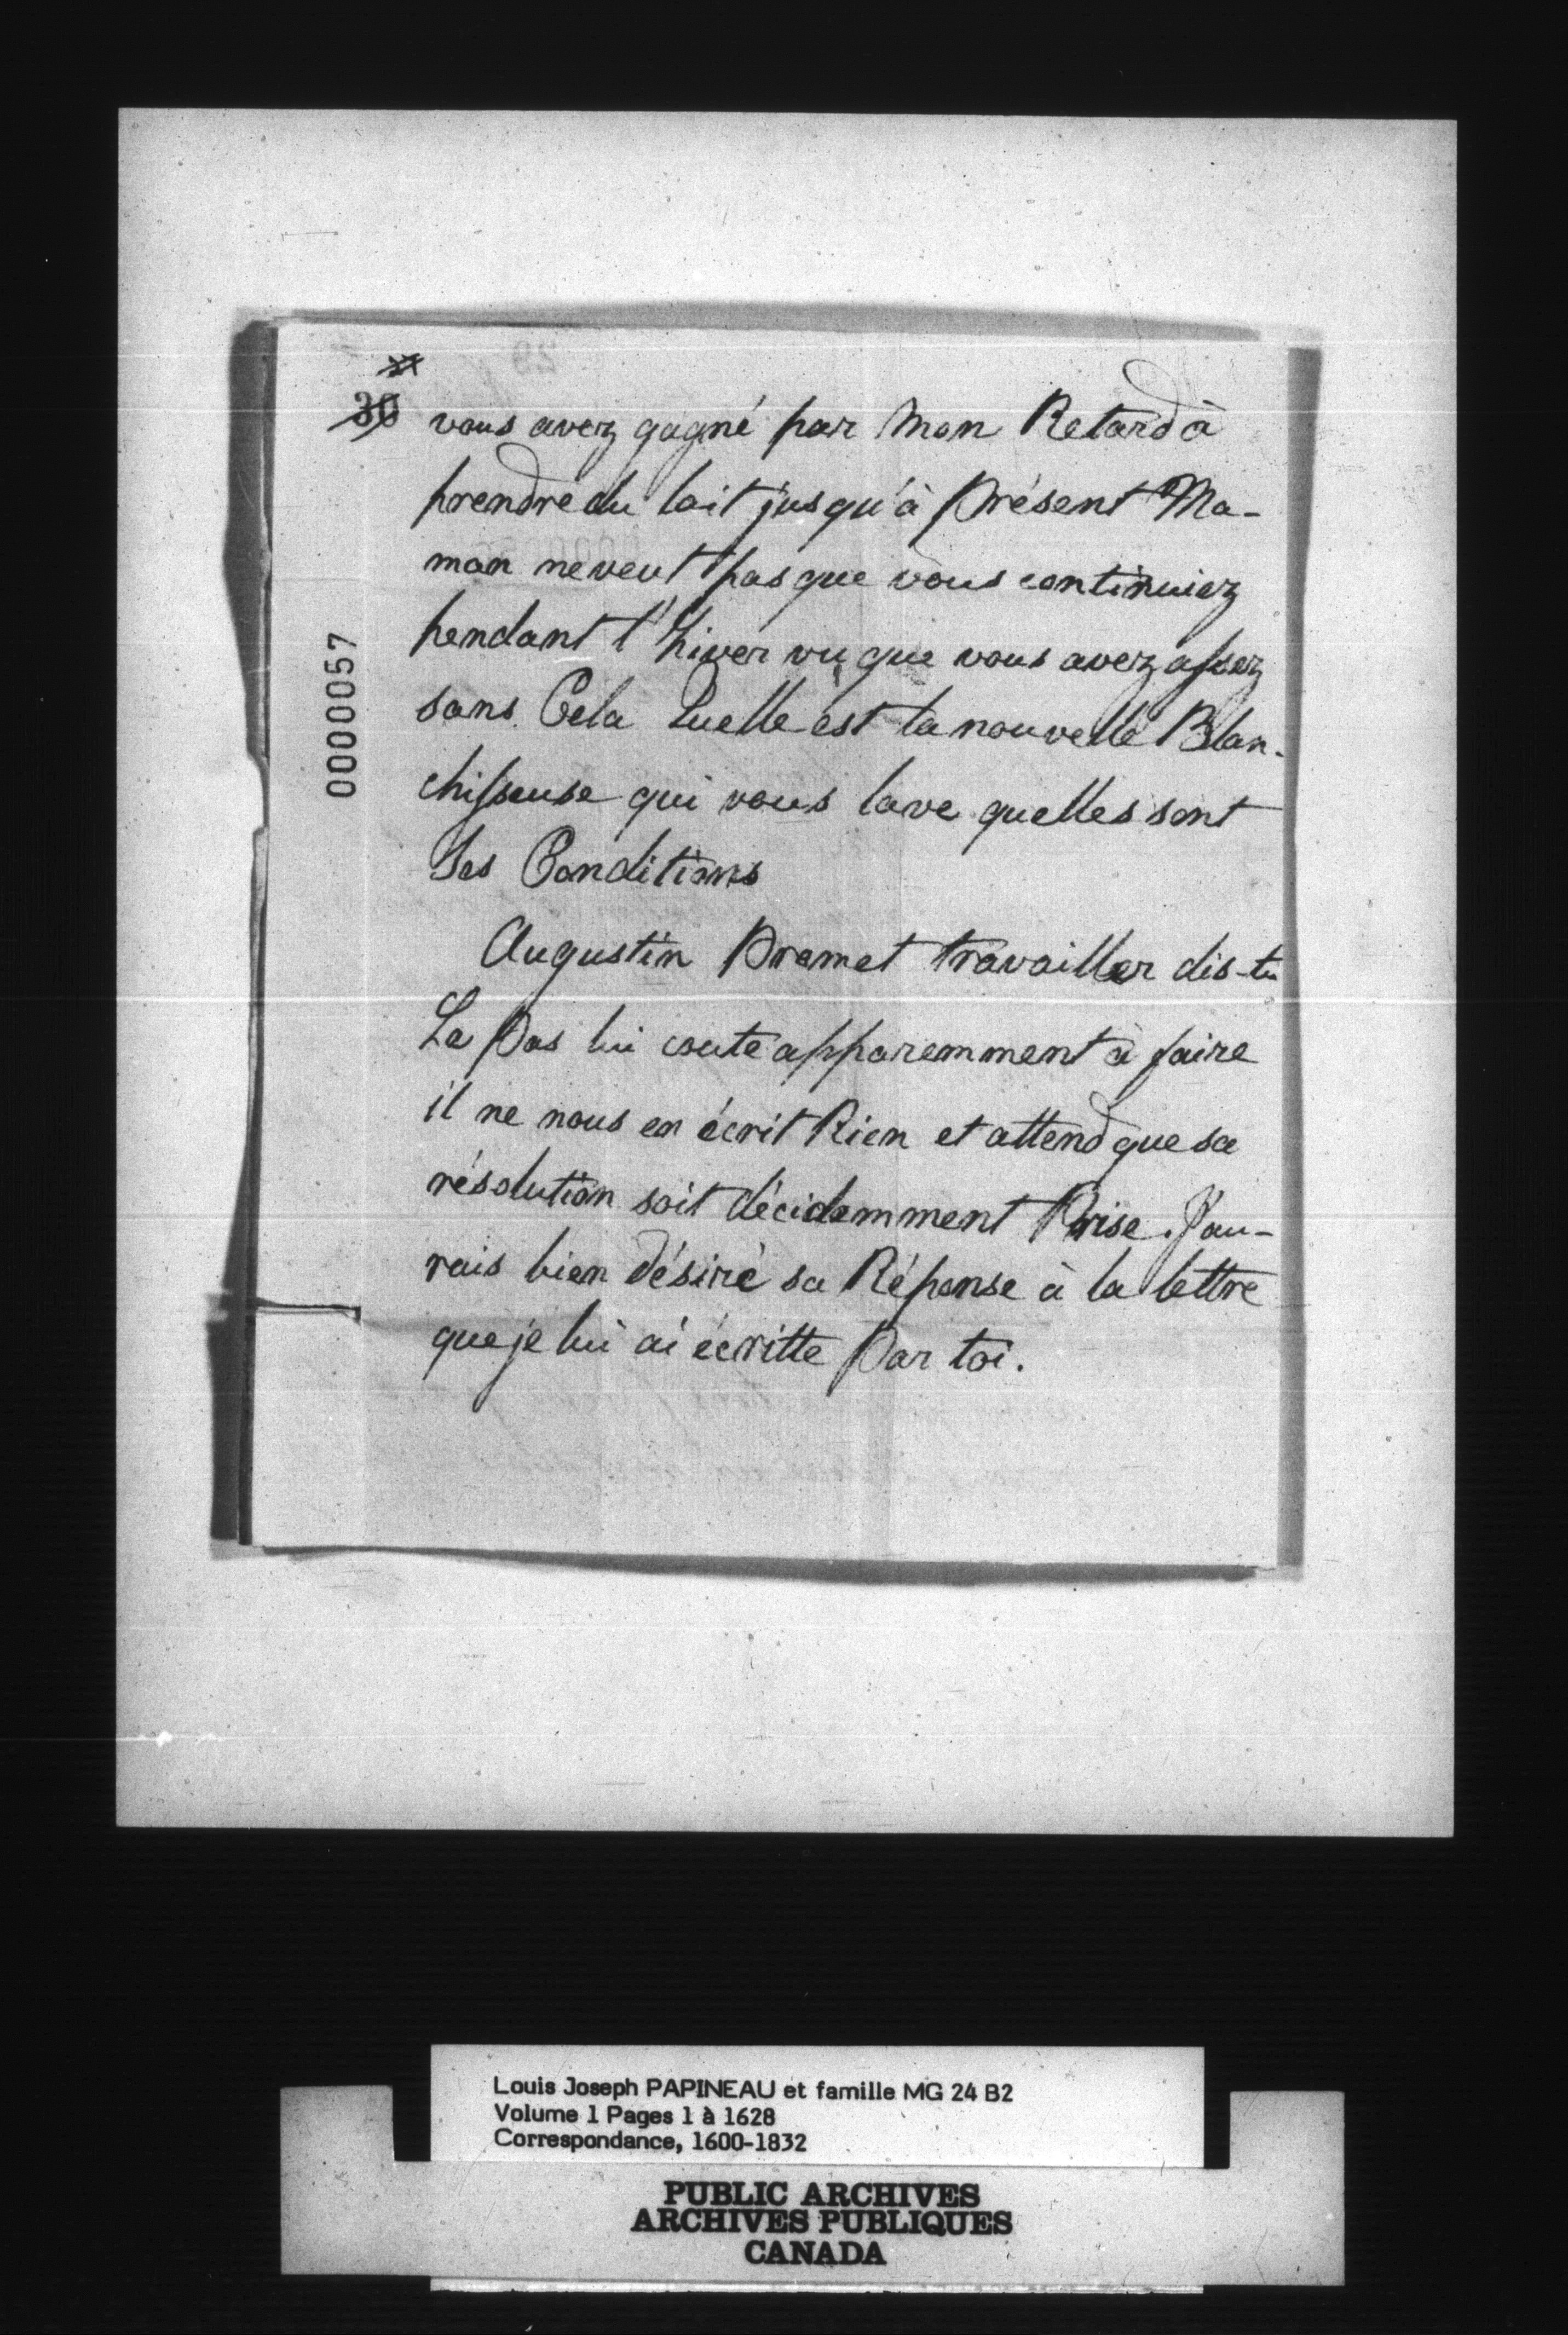 30
vous avez gagné par mon Retard à
prendre du lait jusqu'à présent Ma-
man ne veut pas que vous continuiez
pendant l'hiver vu que vous avez assez
sans Cela Quelle est la nouvelle Blan-
chisseuse qui vous lave quelles sont
Ses Conditions
Augustin Promet travailler dis-tu
Le Pas lui coute apparemment à faire
il ne nous en écrit Rien et attend que sa
résolution soit décidemment Prise. J'au-
rais bien désiré sa Réponse à la lettre
que je lui ai écritte Par toi.
0000057
Louis Joseph PAPINEAU et famille MG 24 B2
Volume 1 Pages 1 à 1628
Correspondance, 1600-1832
PUBLIC ARCHIVES
ARCHIVES PUBLIQUES
CANADA